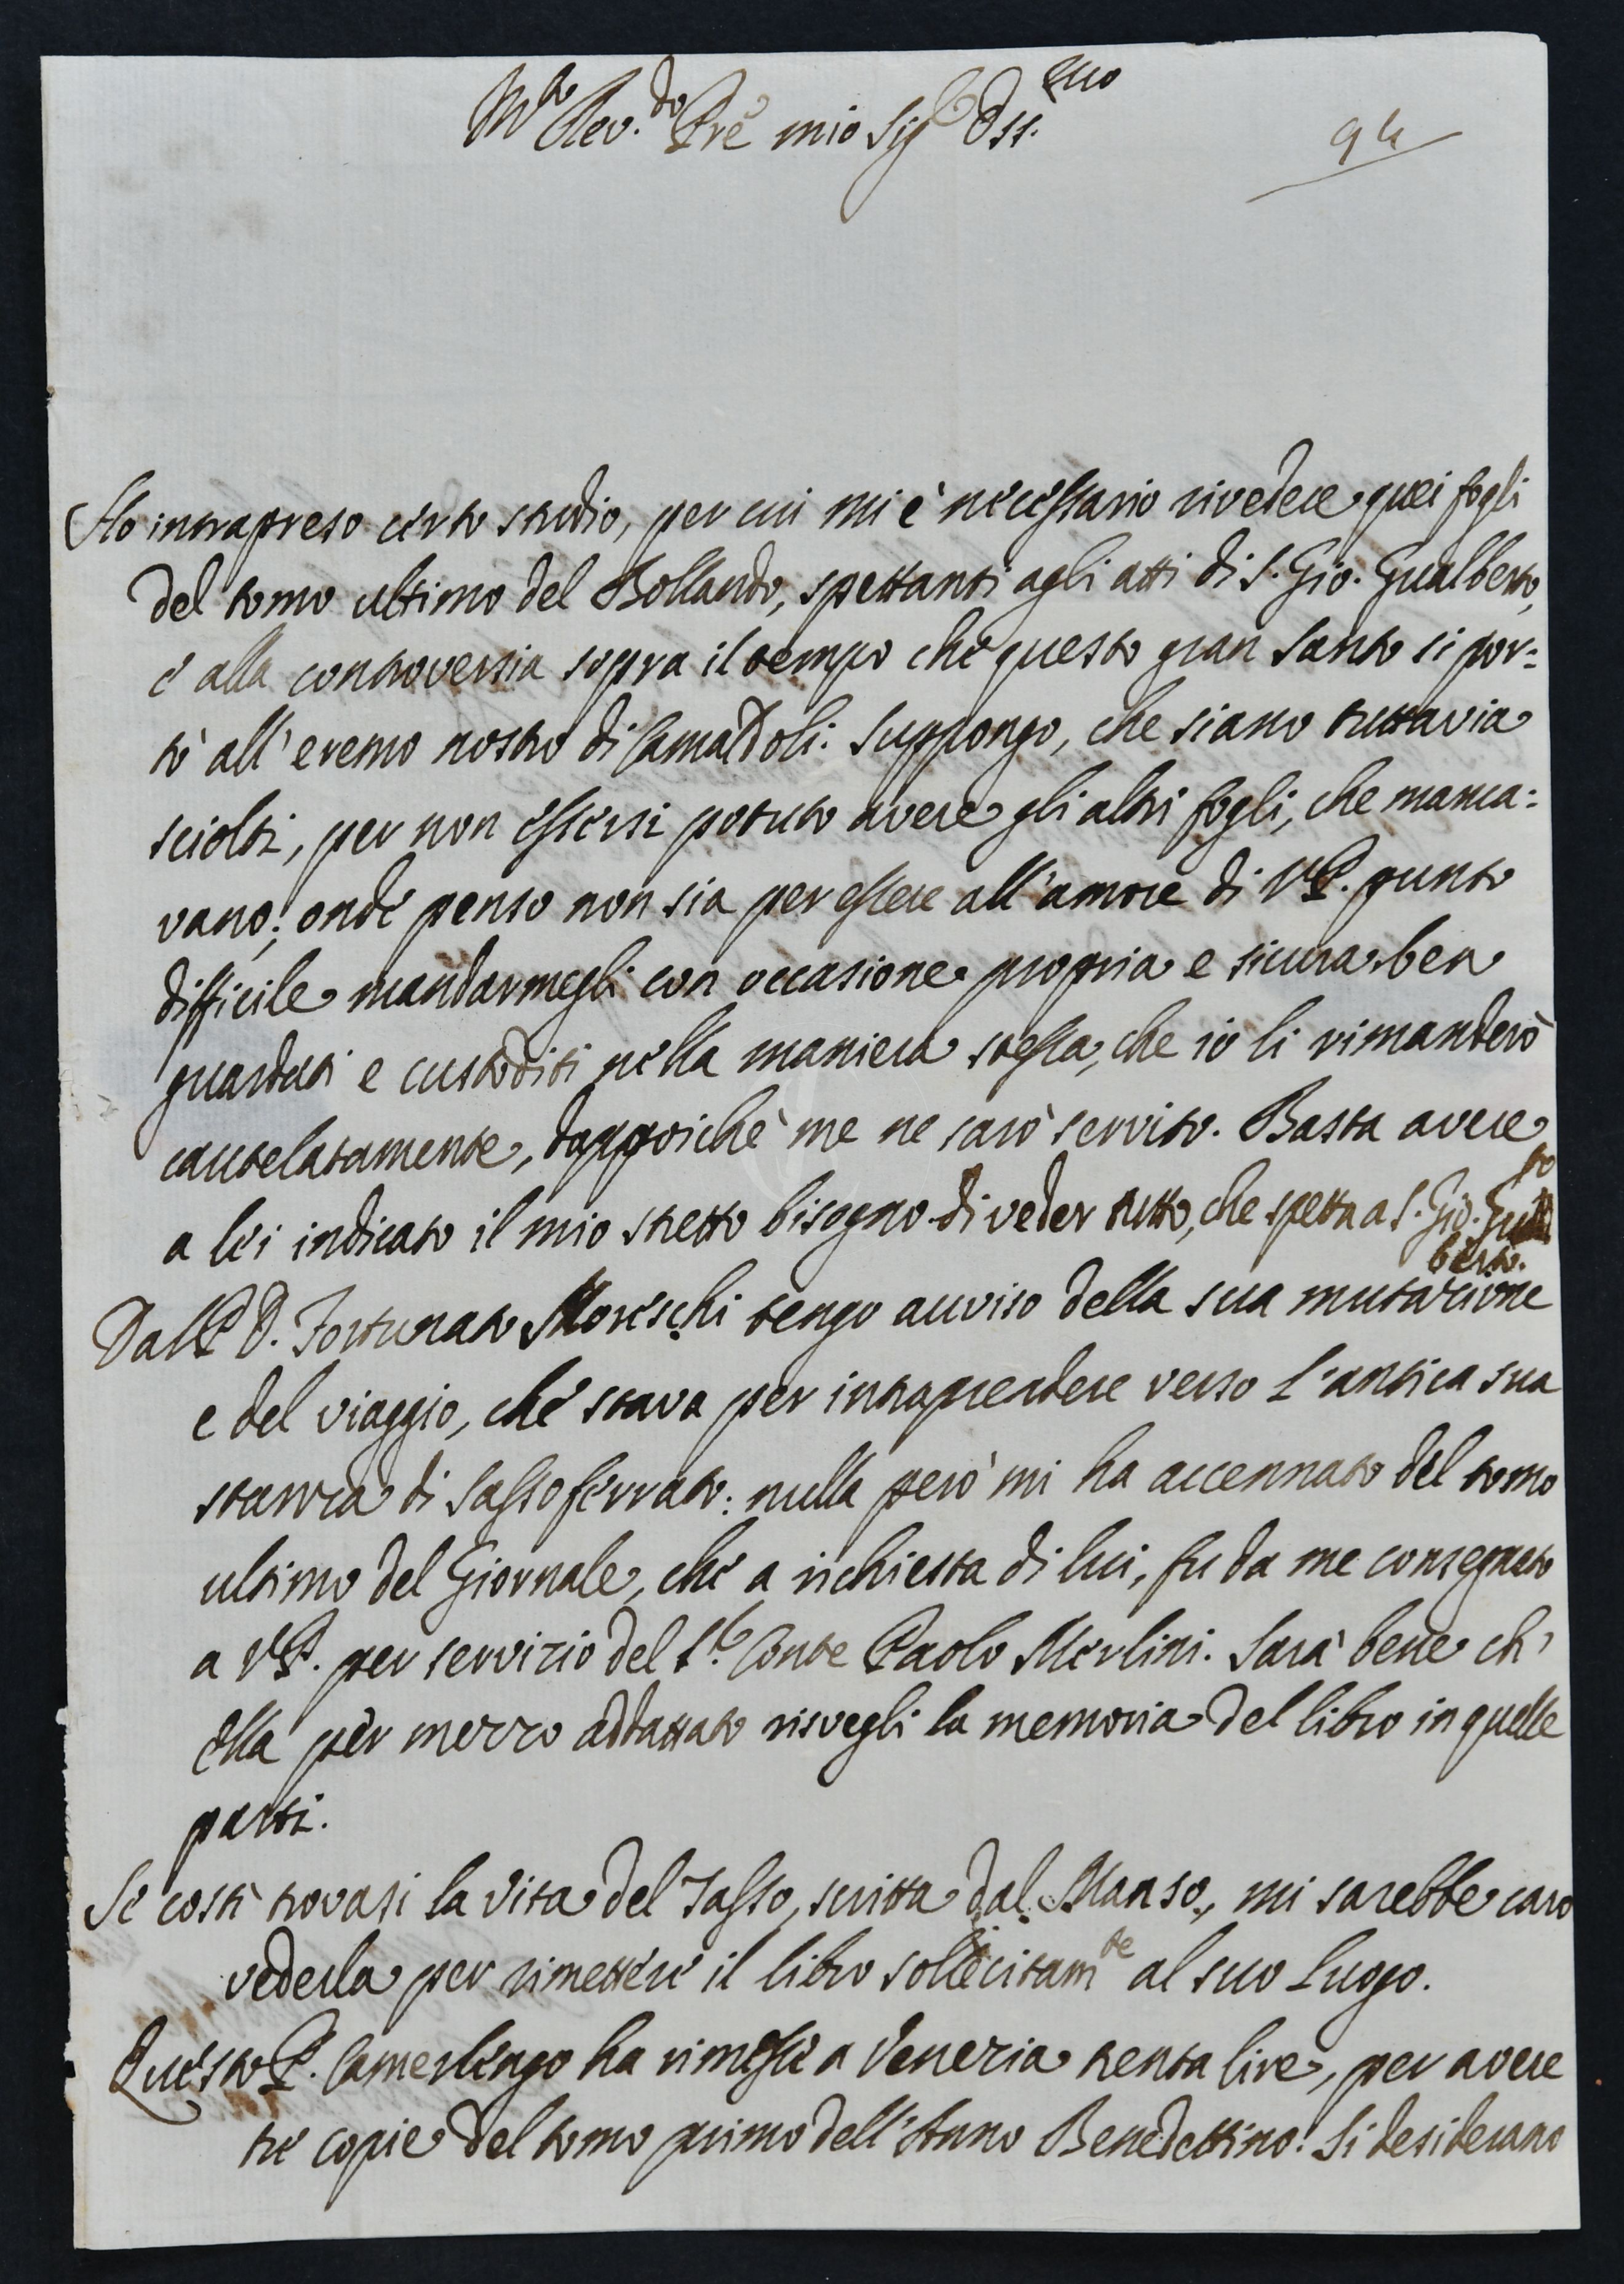 M.to Rev.do Pre mio Sig.e Oss.mo
94
Ho intrapreso certo studio, per cui mi è necessario rivedere quei fogli
del tomo ultimo del Bollando, spettanti agli atti di S. Gio. Gualberto,
e alla controversia sopra il tempo che questo gran Santo si por=
tò all'eremo nostro di Camaldoli. Suppongo, che siano tuttavia
sciolti, per non essersi potuto avere gli altri fogli, che manca=
vano; onde penso non sia per essere all'amore di V.P. punto
difficile mandarmegli con occasione propria e sicura ben
guardati e custoditi nella maniera stessa, che io li rimanderò
cautelatamente, dappoiche me ne sarò servito. Basta avere
a lei indicato il mio stretto bisogno di veder tutto, che spetta a S. Gio. Gual
berto.
Dal P. D. Fortunato Moreschi tengo auviso della sua mutazione
e del viaggio, che stava per intraprendere verso l'antica sua
stanza di Sassoferrato: nulla però mi ha accennato del tomo
ultimo del Giornale, che a richiesta di lui, fu da me consegnato
a V.P. per servizio del S.r Conte Paolo Merlini. Sarà bene ch'
ella per mezzo addattato risvegli la memoria del libro in quelle
parti.
Se costì trovasi la Vita del Tasso, scritta dal Manso, mi sarebbe caro
vederla per rimettere il libro sollecitam.te al suo luogo.
Questo P. Camerlengo ha rimesse a Venezia trenta lire, per avere
tre copie del tomo primo dell'Anno Benedettino. Si desiderano